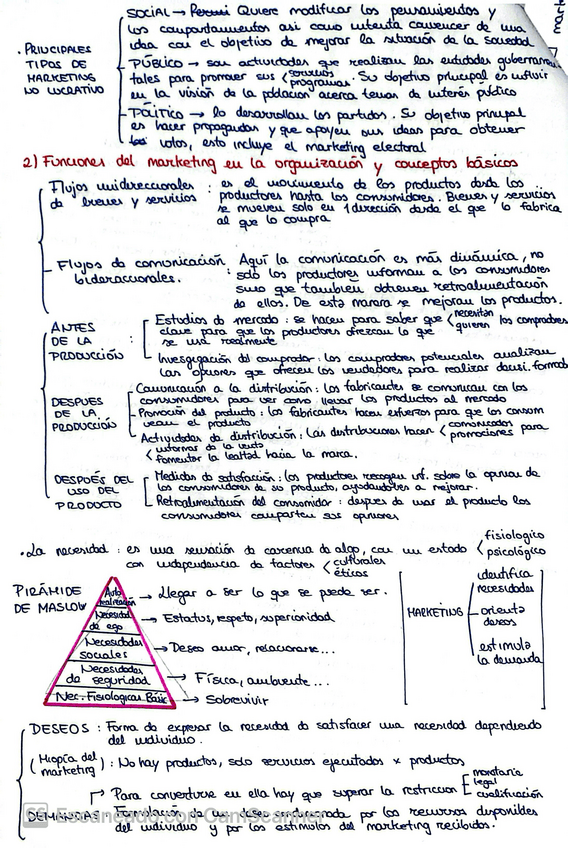 SOCIAL → Quiere modificar los pensamientos y
los comportamientos asi como intenta convencer de una
idea con el objetivo de mejorar la situación de la sociedad
mark
. PRINCIPALES
TIPOS DE
MARKETING
NO LUCRATIVO
PÚBLICO → son actividades que realizan las entidades gubername
tales para promover sus < servicios
programas. Su objetivo principal es influir
en la visión de la población acerca temas de interés público
POLÍTICO → lo desarrollan los partidos. Su objetivo principal
es hacer propagandas y que apoyen sus ideas para obtener
votos, esto incluye el marketing electoral
2) Funciones del marketing en la organización y conceptos básicos
Flujos unidireccionales
de bienes y servicios
: es el movimiento de los productos desde los
productores hasta los consumidores. Bienes y servicios
se mueven solo en 1 dirección desde el que lo fabrica
al que lo compra
Flujos de comunicación
bidireccionales.
: Aquí la comunicación es más dinámica, no
solo los productores informan a los consumidores
sino que también obtienen retroalimentación
de ellos. De esta manera se mejoran los productos.
ANTES
DE LA
PRODUCCIÓN
:
Estudios de mercado : se hacen para saber que < necesitan
quieren los compradores
clave para que los productores ofrezcan lo que
se usa realmente
Investigación del comprador : los compradores potenciales analizan
las opciones que ofrecen los vendedores para realizar
DESPUES
DE LA
PRODUCCIÓN
Comunicación a la distribución : los fabricantes se comunican con los
consumidores para ver como llevar los productos al mercado
Promoción del producto : los fabricantes hacen esfuerzos para que los consum
vean el producto
Actividades de distribución : Los distribuidores hacen < comunicados
promociones para
< informar de la venta
fomentar la lealtad hacia la marca.
DESPUÉS DEL
USO DEL
PRODUCTO
Medidas de satisfacción : los productores recogen inf. sobre la opinion de
los consumidores de su producto, ayudandoles a mejorar.
Retroalimentación del consumidor : despues de usar el producto los
consumidores comparten sus opiniones
. La necesidad : es una sensación de carencia de algo, con un estado < fisiologico
psicológico
con independencia de factores < culturales
éticos
PIRÁMIDE
DE MASLOW
Auto
realización
→ Llegar a ser lo que se puede ser.
Necesidad
de ego
→ Estatus, respeto, superioridad
Necesidades
sociales
→ Deseo amor, relacionarse...
Necesidades
de seguridad
→ Física, ambiente...
Nec. Fisiologicas Básic
→ Sobrevivir
MARKETING
identifica
necesidades
orienta
deseos
estimula
la demanda
DESEOS : Forma de expresar la necesidad de satisfacer una necesidad dependiendo
del individuo.
(Miopía del
marketing) : No hay productos, solo servicios ejecutados x productos
Para convertirse en ella hay que superar la restriccion
monetaria
legal
cualificación
DEMANDAS : Formulación de un deseo condicionada por los recursos disponibles
del individuo y por los estimulos del marketing recibidos.
CS Escaneado con CamScanner